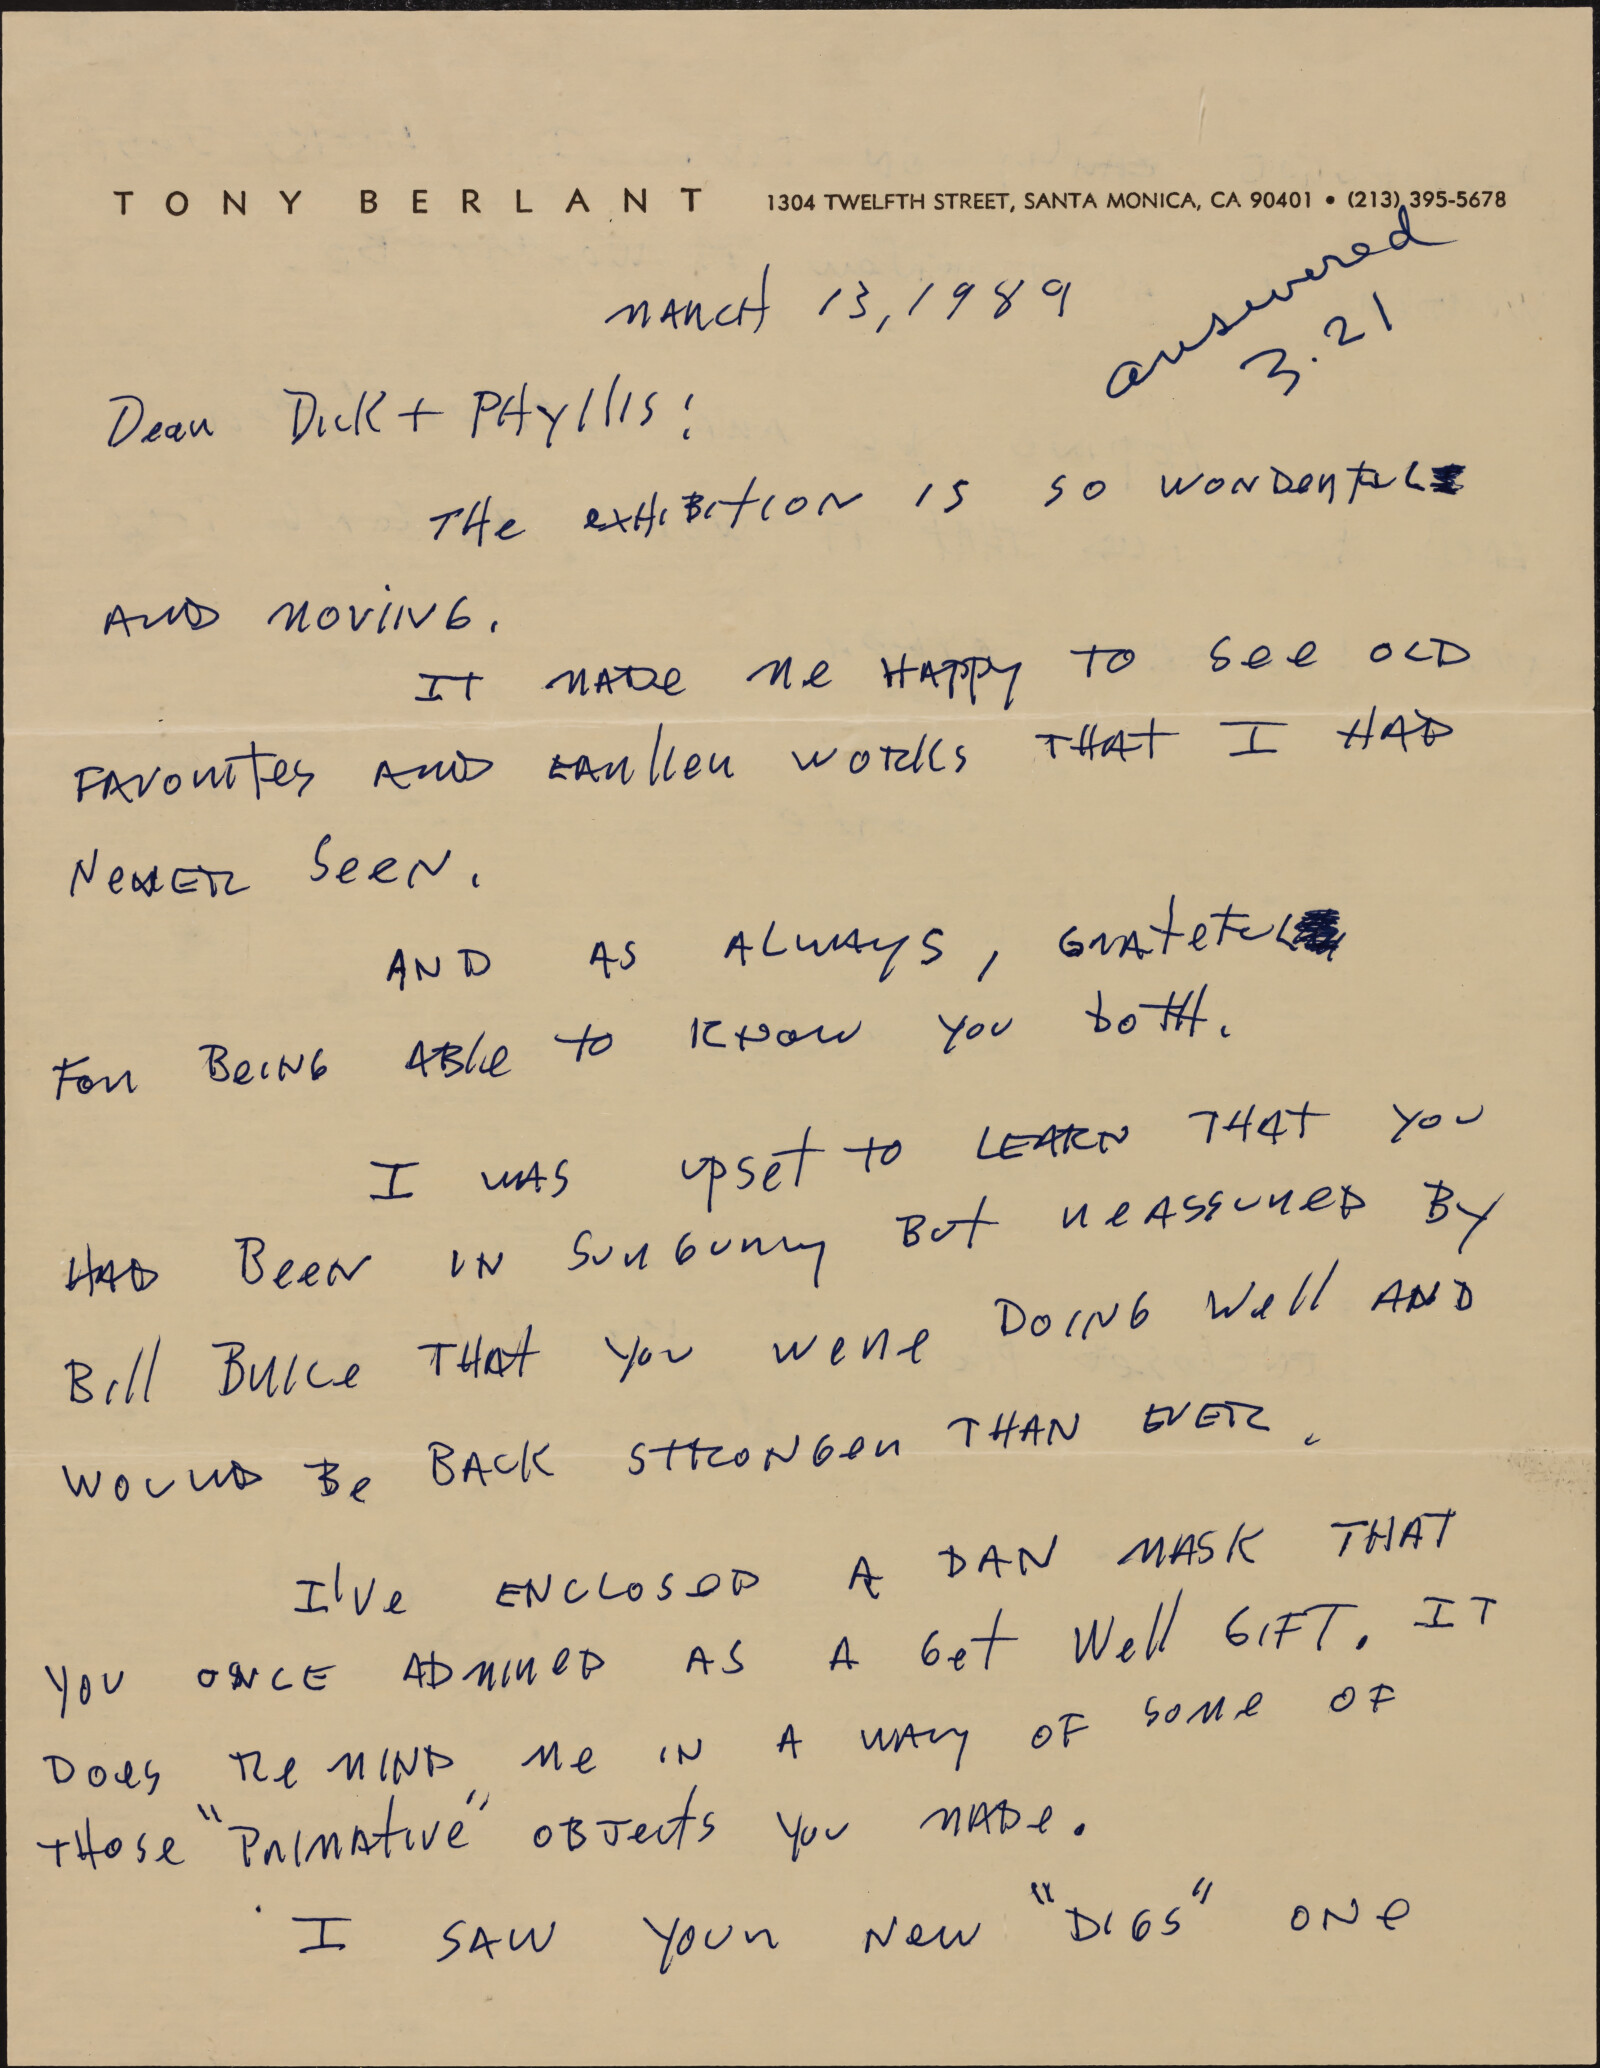 TONY BERLANT 1304 TWELFTH STREET, SANTA MONICA, CA 90401 • (213) 395-5678
answered
3.21
MARCH 13, 1989
Dear Dick + PHyllis:
THe exHiBitION IS SO WONDerFUL
AND MOViiNG.
IT MADe Me HAPPY TO See OLD
FAVORITes AND EARlier WORKS THAT I HAD
NeVER SeeN.
AND AS ALWAYS, GRATeFUL
For BeING ABle to KNOW YOU botH.
I WAS UPSet to LEARN THAT YOU
HAD BeeN IN SURGURY But ReASSUReD BY
Bill BRICe THAt YOU WeRe DOING Well AND
WOULD Be BACK STRONGer THAN EVER.
I'Ve ENCLOSeD A DAN MASK THAT
YOU ONCE ADMIReD AS A Get Well GIFT. IT
Does ReMIND Me IN A WAY OF SOMe OF
THOSe "PRIMAtIVe" OBJects YOU MADe.
I SAW YOUR NeW "DIGS" ONe